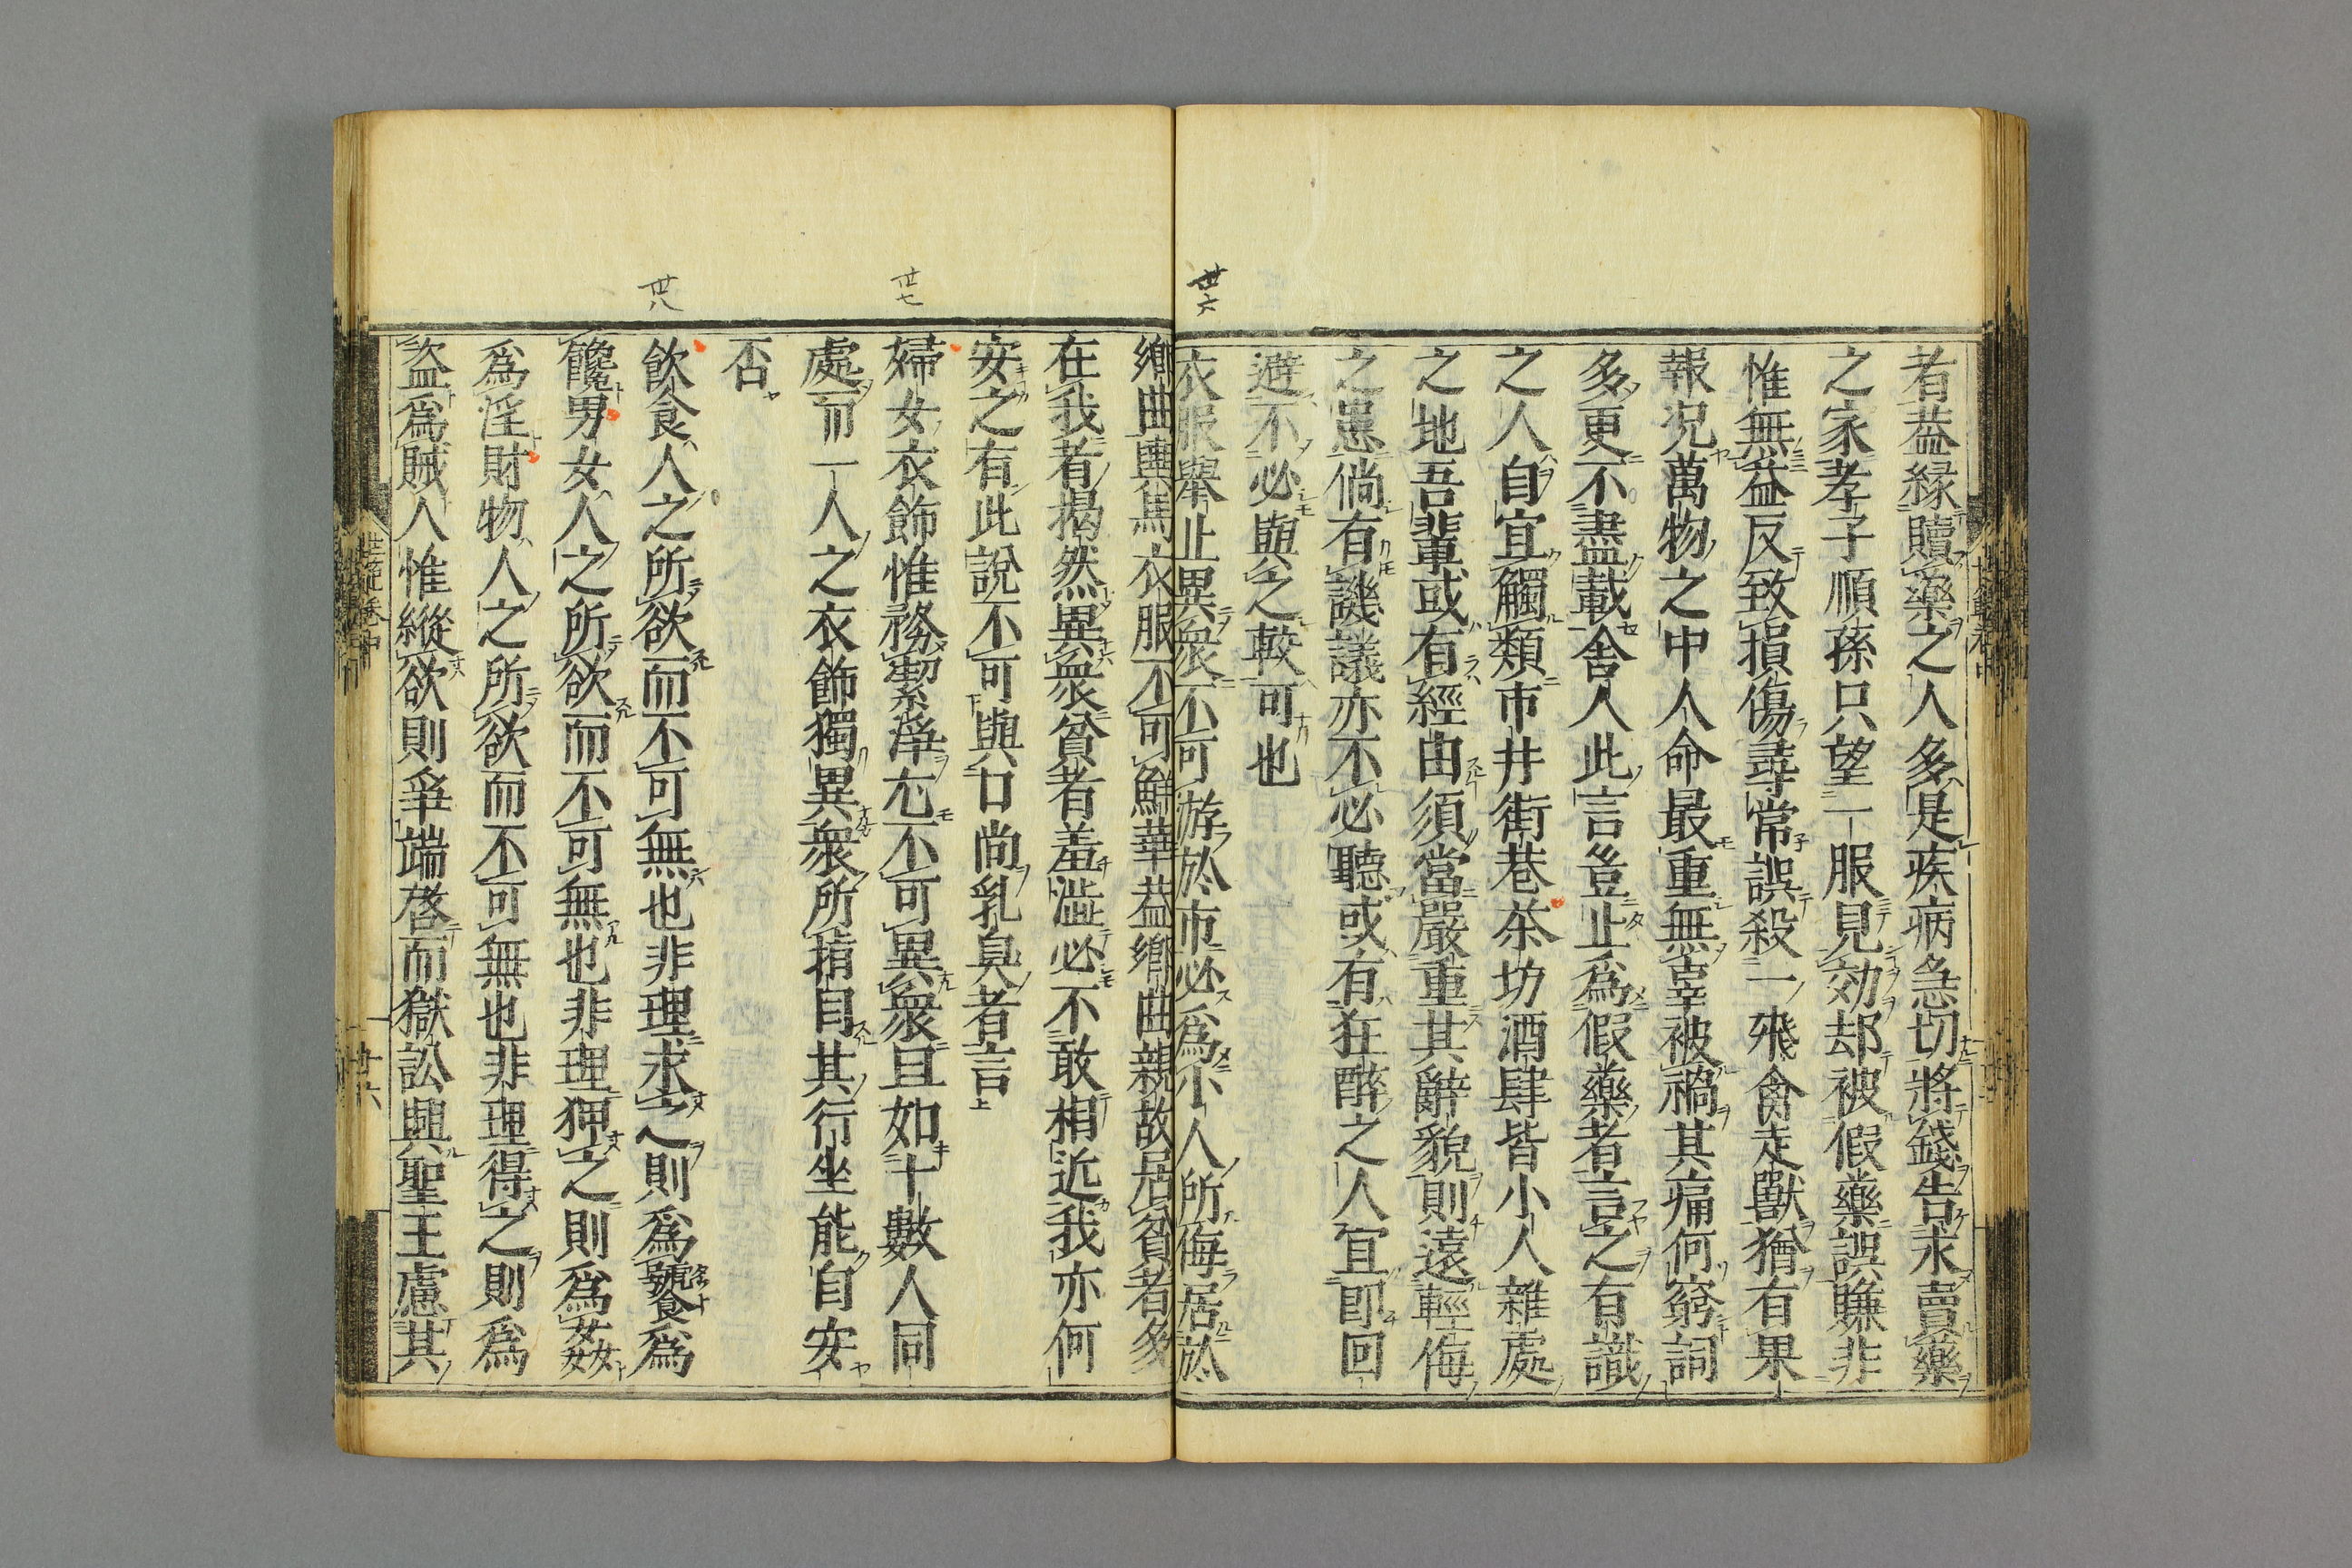 者葢緣贖藥之人多是疾病急切將錢告求賣藥
之家孝子順孫只望一服見効却被假藥誤賺非
惟無益反致損傷尋常誤殺一飛禽走獸猶有果
報况萬物之中人命最重無辜被禍其痛何窮詞
多更不盡載舍人此言豈止為假藥者言之有識
之人自宜觸類市井街巷茶坊酒肆皆小人雜處
之地吾輩或有經由須當嚴重其辭貌則遠輕侮
之患倘有譏議亦不必聽或有狂醉之人宜即回
避不必與之較可也
衣服舉止異衆不可游於市必爲小人所侮居於
鄉曲輿馬衣服不可鮮華葢鄉曲親故居貧者多
在我者揭然異衆貧者羞澁必不敢相近我亦何
安之有此說不可與口尚乳臭者言
婦女衣飾惟務潔淨尤不可異衆且如十數人同
處而一人之衣飾獨異衆所指目其行坐能自安
否
飲食人之所欲而不可無也非理求之則爲饕爲
饞男女人之所欲而不可無也非理狎之則爲姦
爲淫財物人之所欲而不可無也非理得之則爲
盜爲賊人惟縱欲則爭端啓而獄訟興聖王慮其
卅六
卅七
卅八
世範卷中
廿六